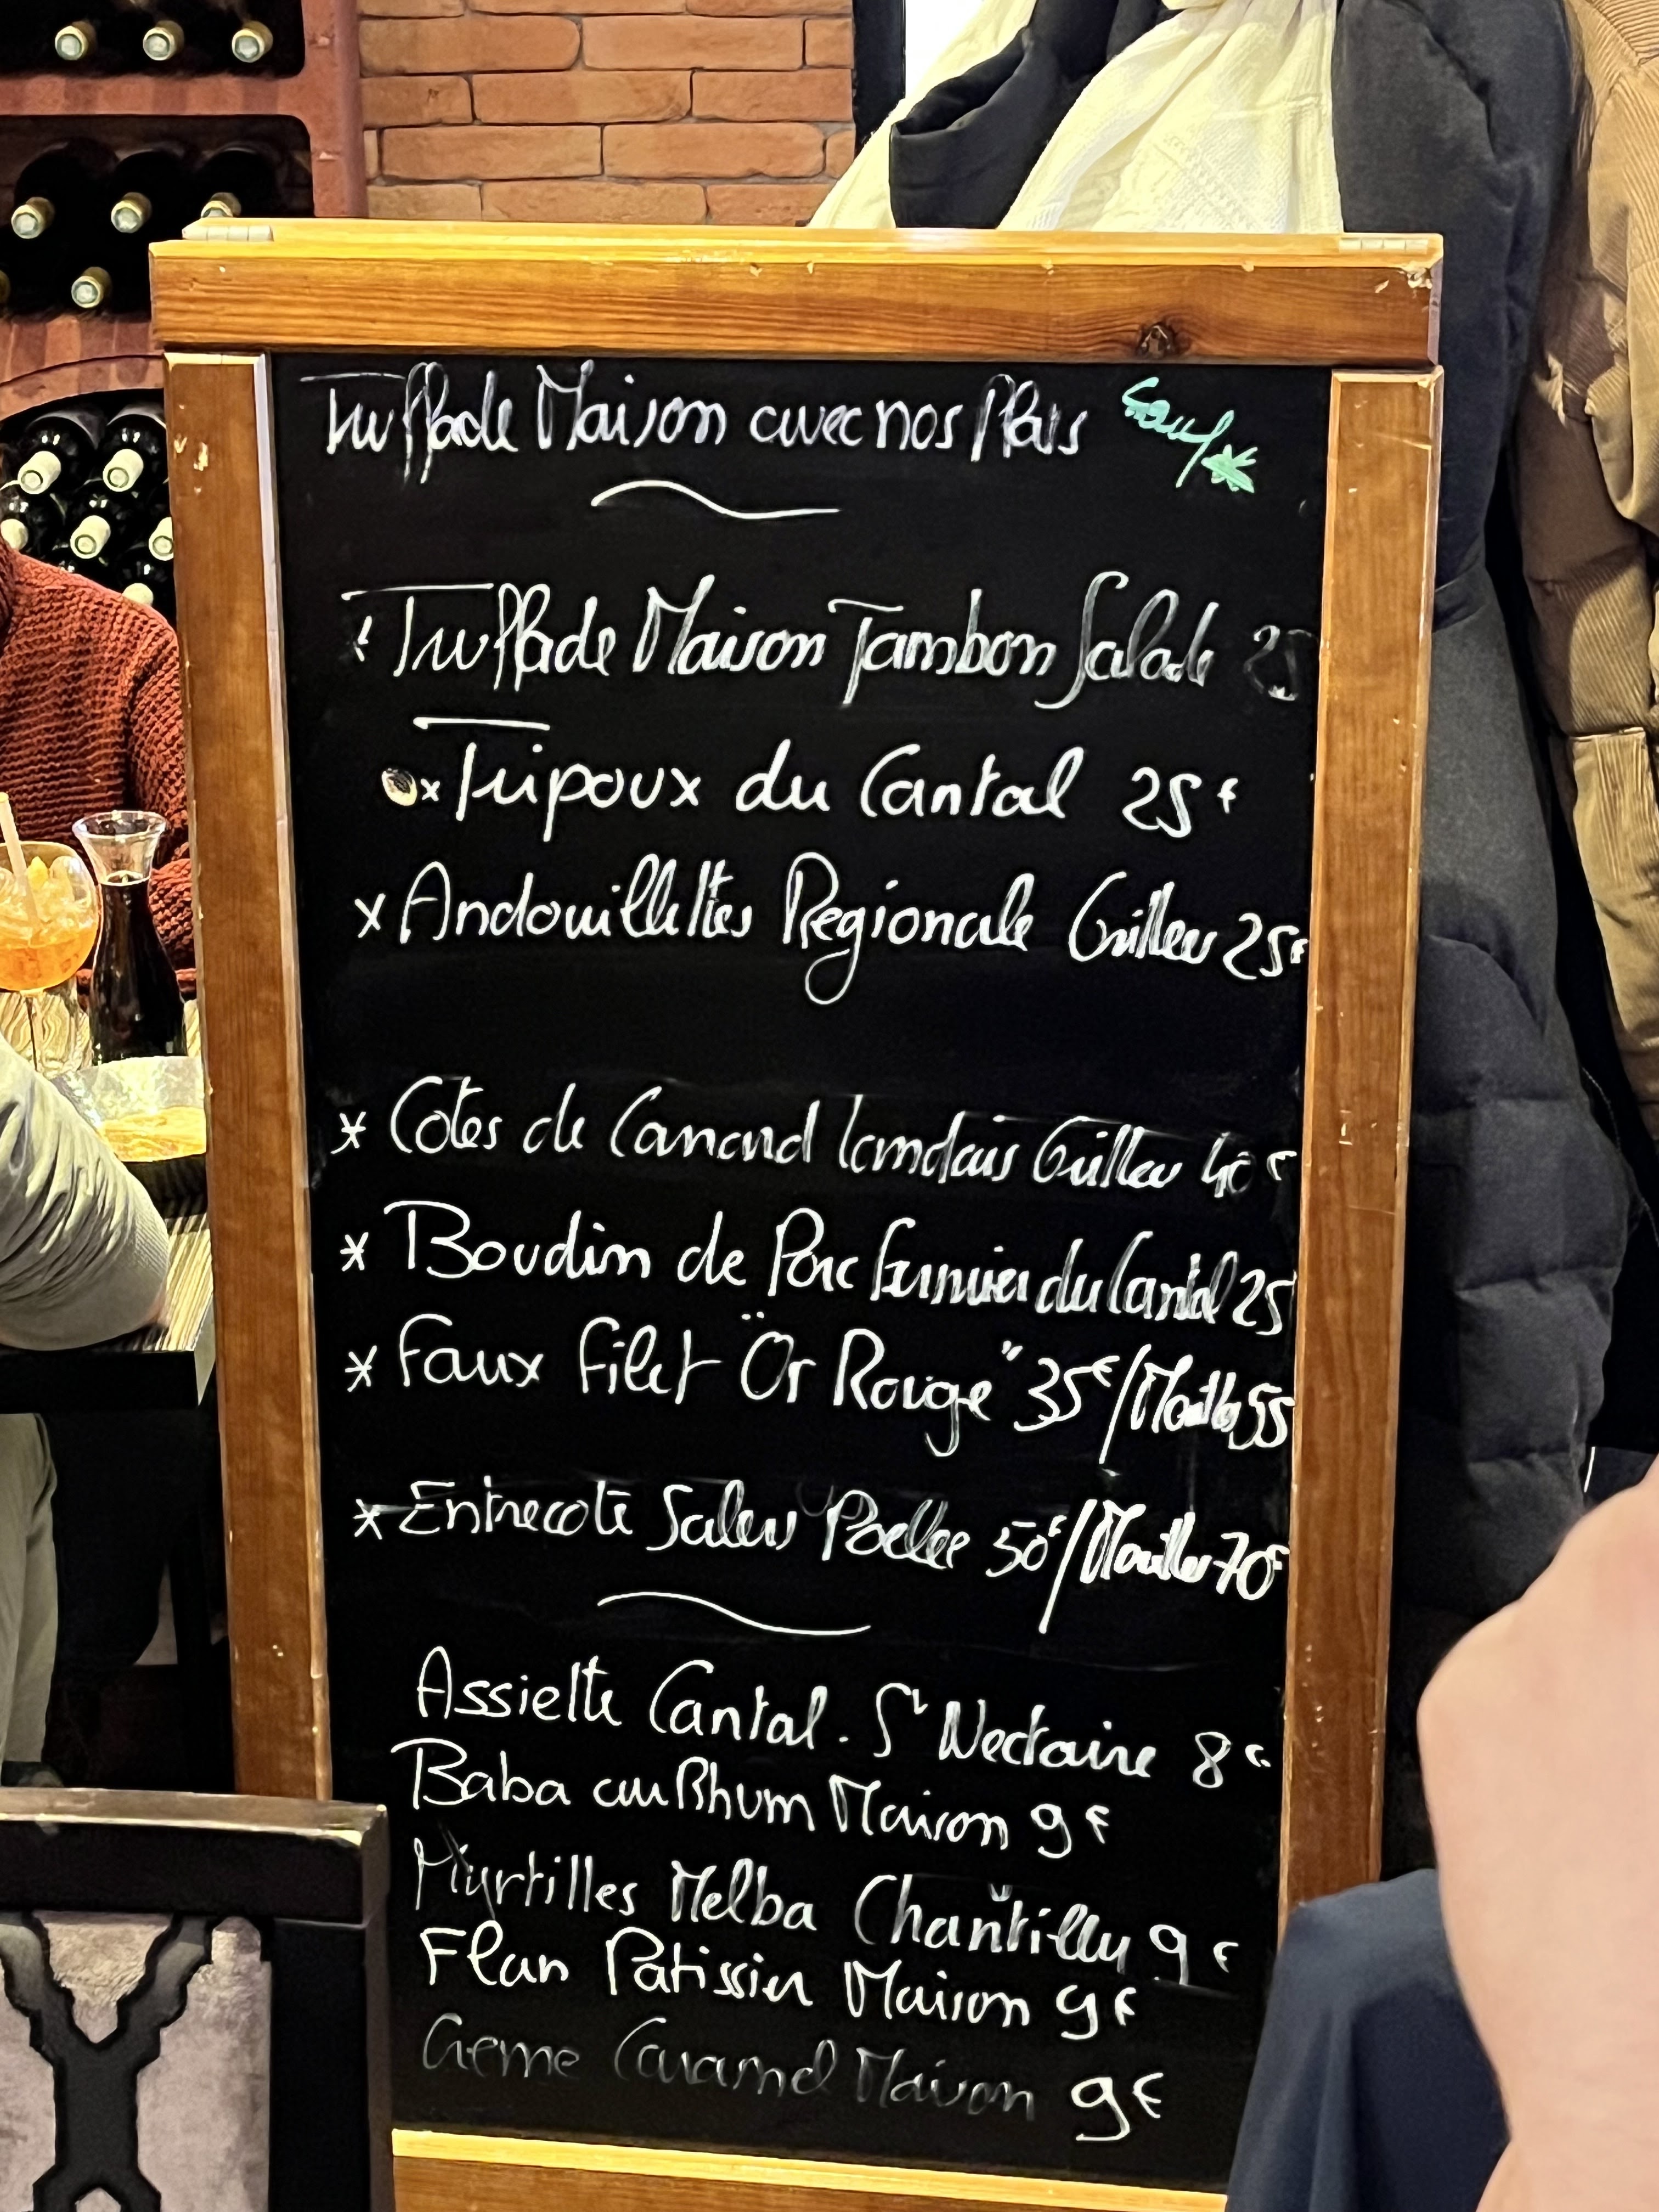 Truffade Maison avec nos Plats Sauf *
* Truffade Maison Jambon Salade 25
x Tripoux du Cantal 25€
x Andouillettes Régionale Griller 25€
* Cotes de Canard landais Griller 40€
* Boudin de Porc fermier du Cantal 25
* Faux filet "Or Rouge" 35€/Moelle 55
* Entrecote Salers Poelee 50€/Moelle 70€
Assiette Cantal. St Nectaire 8€
Baba au Rhum Maison 9€
Myrtilles Melba Chantilly 9€
Flan Patissier Maison 9€
Creme Caramel Maison 9€